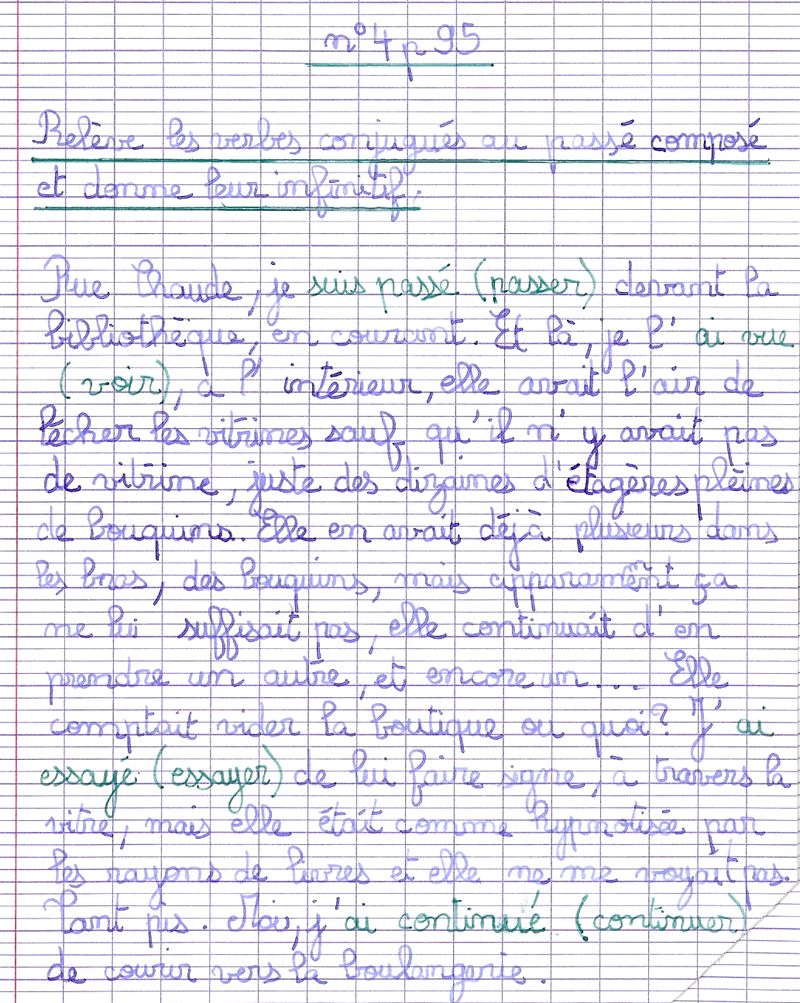 n°4 p 95
Relève les verbes conjugués au passé composé
et donne leur infinitif.
Rue Chaude, je suis passé (passer) devant la
bibliothèque, en courant. Et là, je l'ai vue
(voir), à l'intérieur, elle avait l'air de
lécher les vitrines sauf qu'il n'y avait pas
de vitrine, juste des dizaines d'étagères pleines
de bouquins. Elle en avait déjà plusieurs dans
les bras, des bouquins, mais apparamment ça
ne lui suffisait pas, elle continuait d'en
prendre un autre, et encore un... Elle
comptait vider la boutique ou quoi? J'ai
essayé (essayer) de lui faire signe, à travers la
vitre, mais elle était comme hypnotisée par
les rayons de livres et elle ne me voyait pas.
Tant pis. Moi, j'ai continué (continuer)
de courir vers la boulangerie.